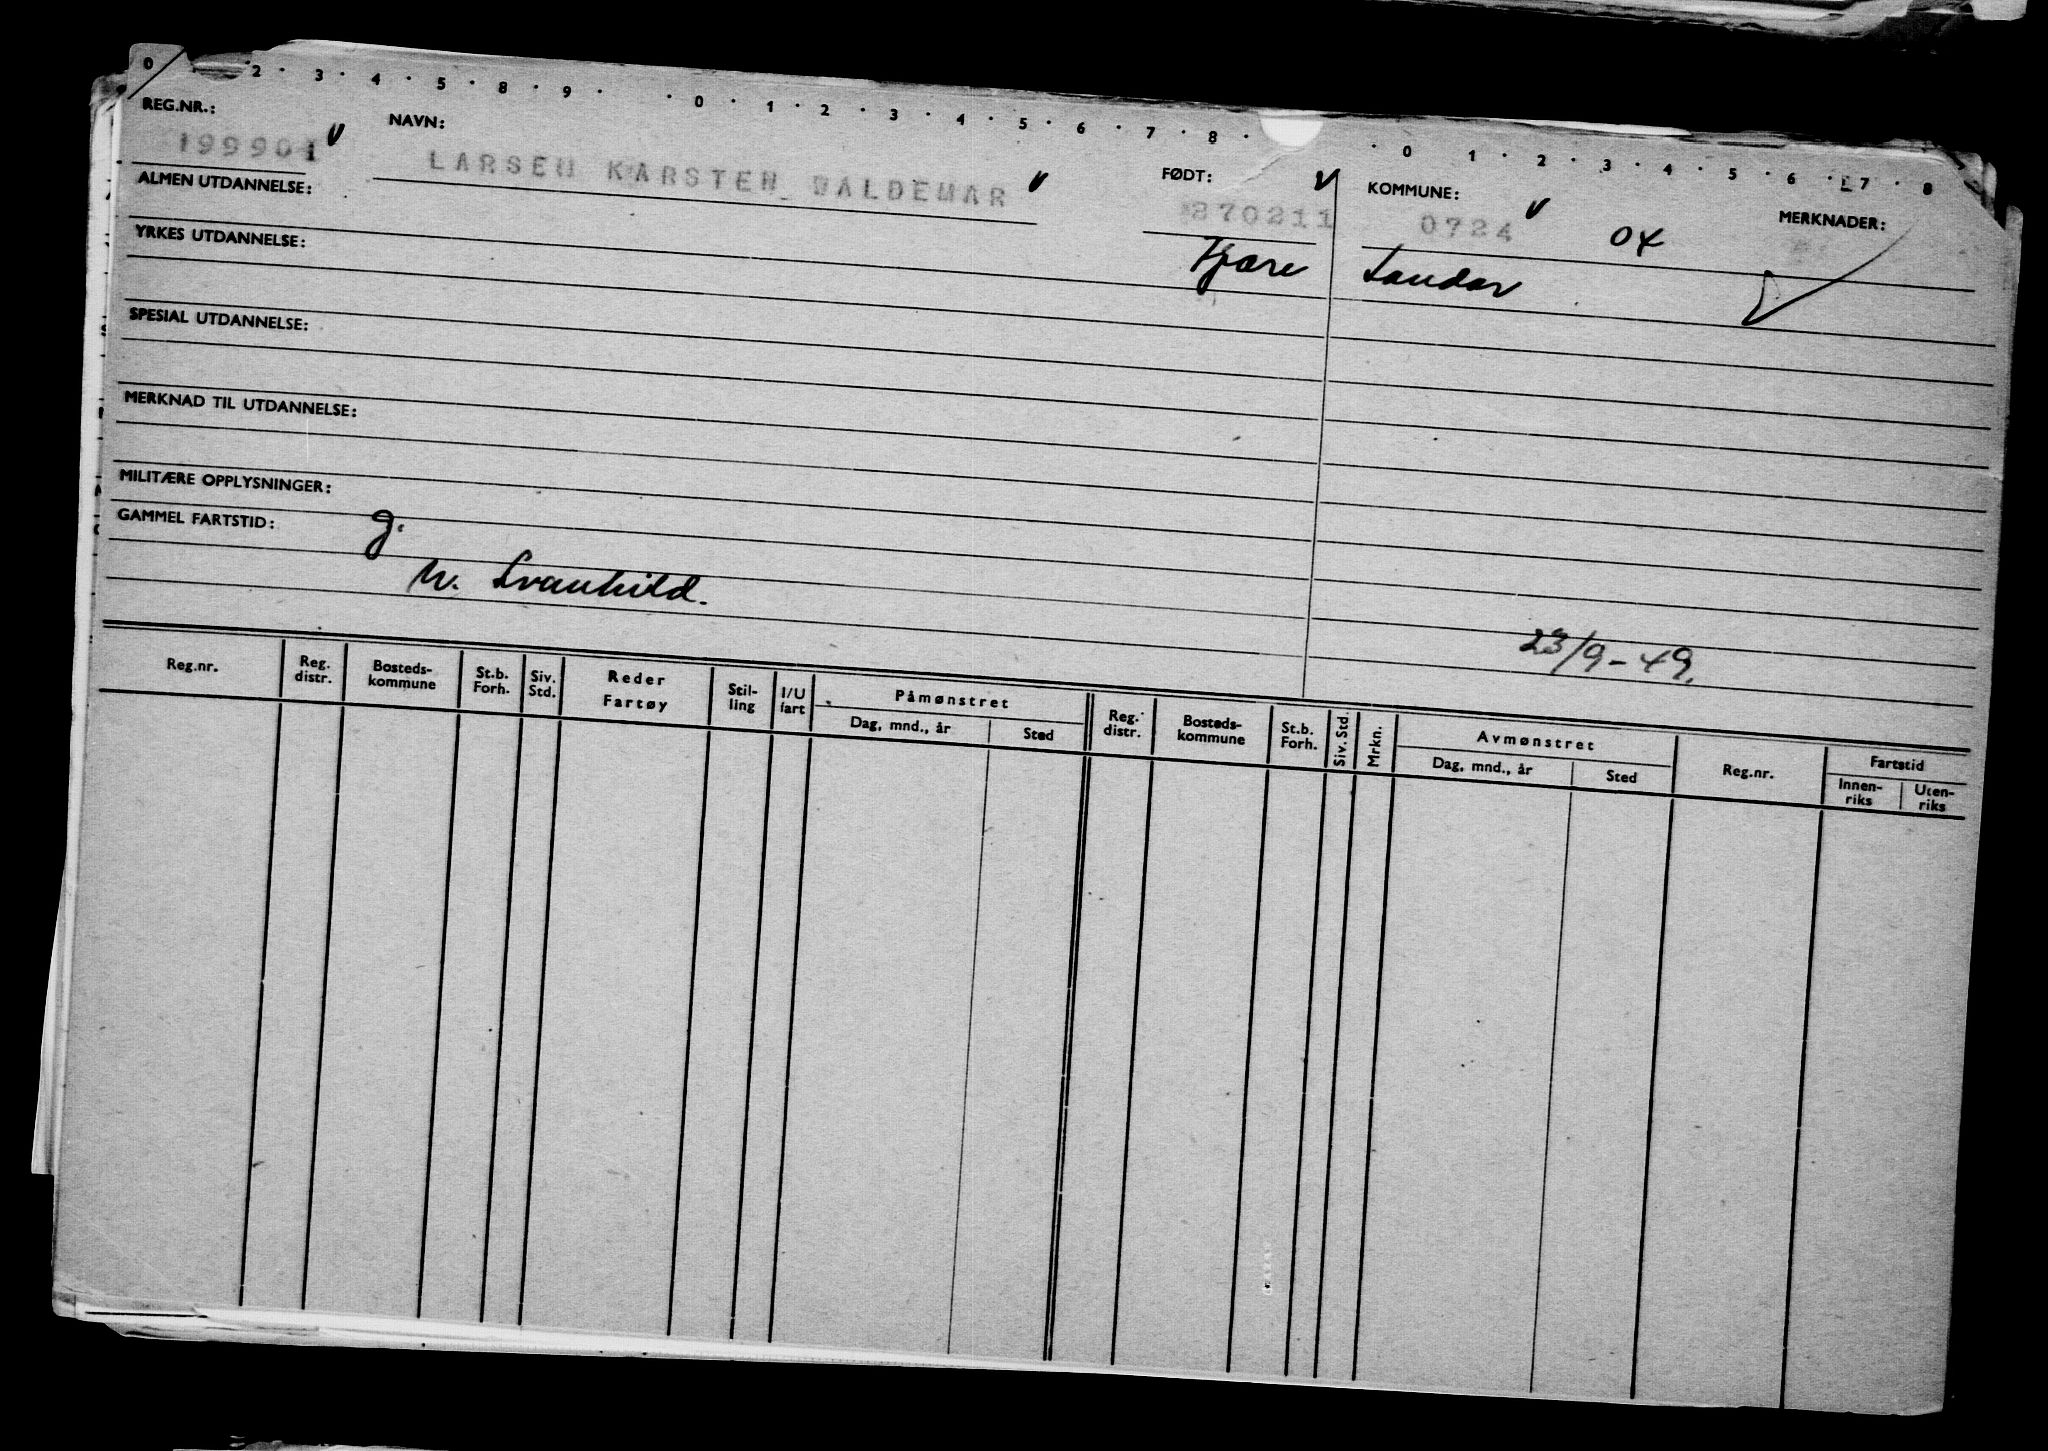 0 2 · 3 · 4 · 5 · 8 · 9 · · 0 · 1 · 2 · 3 · 4 · 5 · 6 · 7 · 8 · · 0 · 1 · 2 · 3 · 4 · 5 · 6 · 7 · 8
REG.NR.: NAVN: FØDT: KOMMUNE: MERKNADER:
199901 LARSEN KARSTEN WALDEMAR 270211 0724 04
ALMEN UTDANNELSE:
Kjære Sandar
YRKES UTDANNELSE:
SPESIAL UTDANNELSE:
MERKNAD TIL UTDANNELSE:
MILITÆRE OPPLYSNINGER:
GAMMEL FARTSTID: g.
M. Svanhild.
23/9-49.
Reg.nr. Reg. distr. Bosteds-kommune St.b. Forh. Siv. Std. Reder Fartøy Stil-ling I/U fart Påmønstret Reg. distr. Bosteds-kommune St.b. Forh. Siv. Std. Mrkn. Avmønstret Reg.nr. Fartstid
Dag, mnd., år Sted Dag, mnd., år Sted Innen-riks Uten-riks